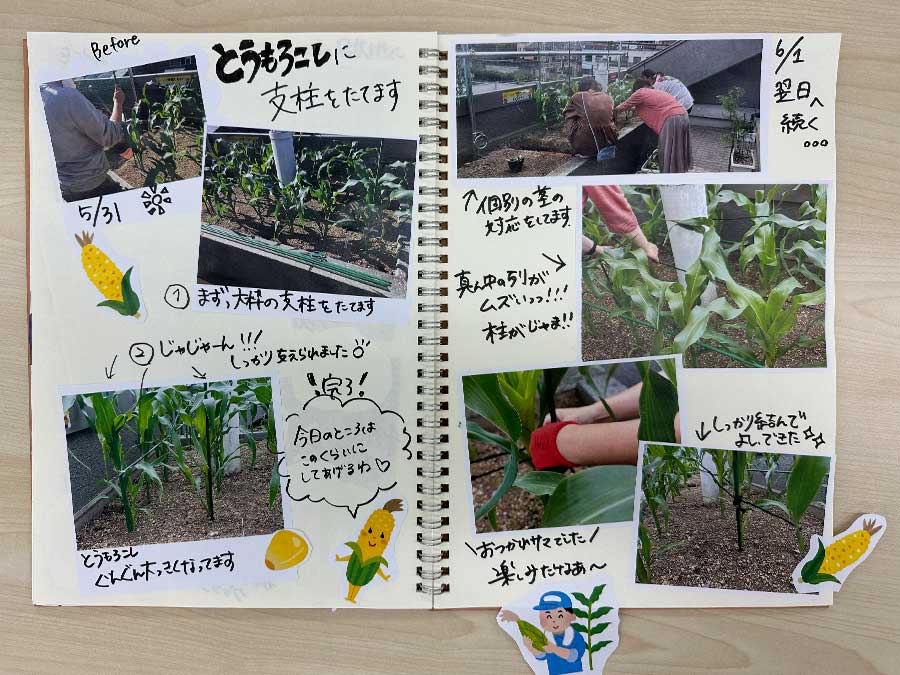 Before
とうもろこしに
支柱をたてます
5/31
① まず、大枠の支柱をたてます
② じゃじゃーん!!!
しっかり支えられました
完了!
今日のところは
このくらいに
してあげるわ♡
とうもろこし
ぐんぐん大きくなってます
6/1
翌日へ
続く...
↑個別の茎の
対応をしてます
真ん中の列が
ムズいっっ!!!
柱がじゃま!!
↓しっかり結んで
よしできた☆☆
\おつかれサマでした/
楽しみだなあ〜